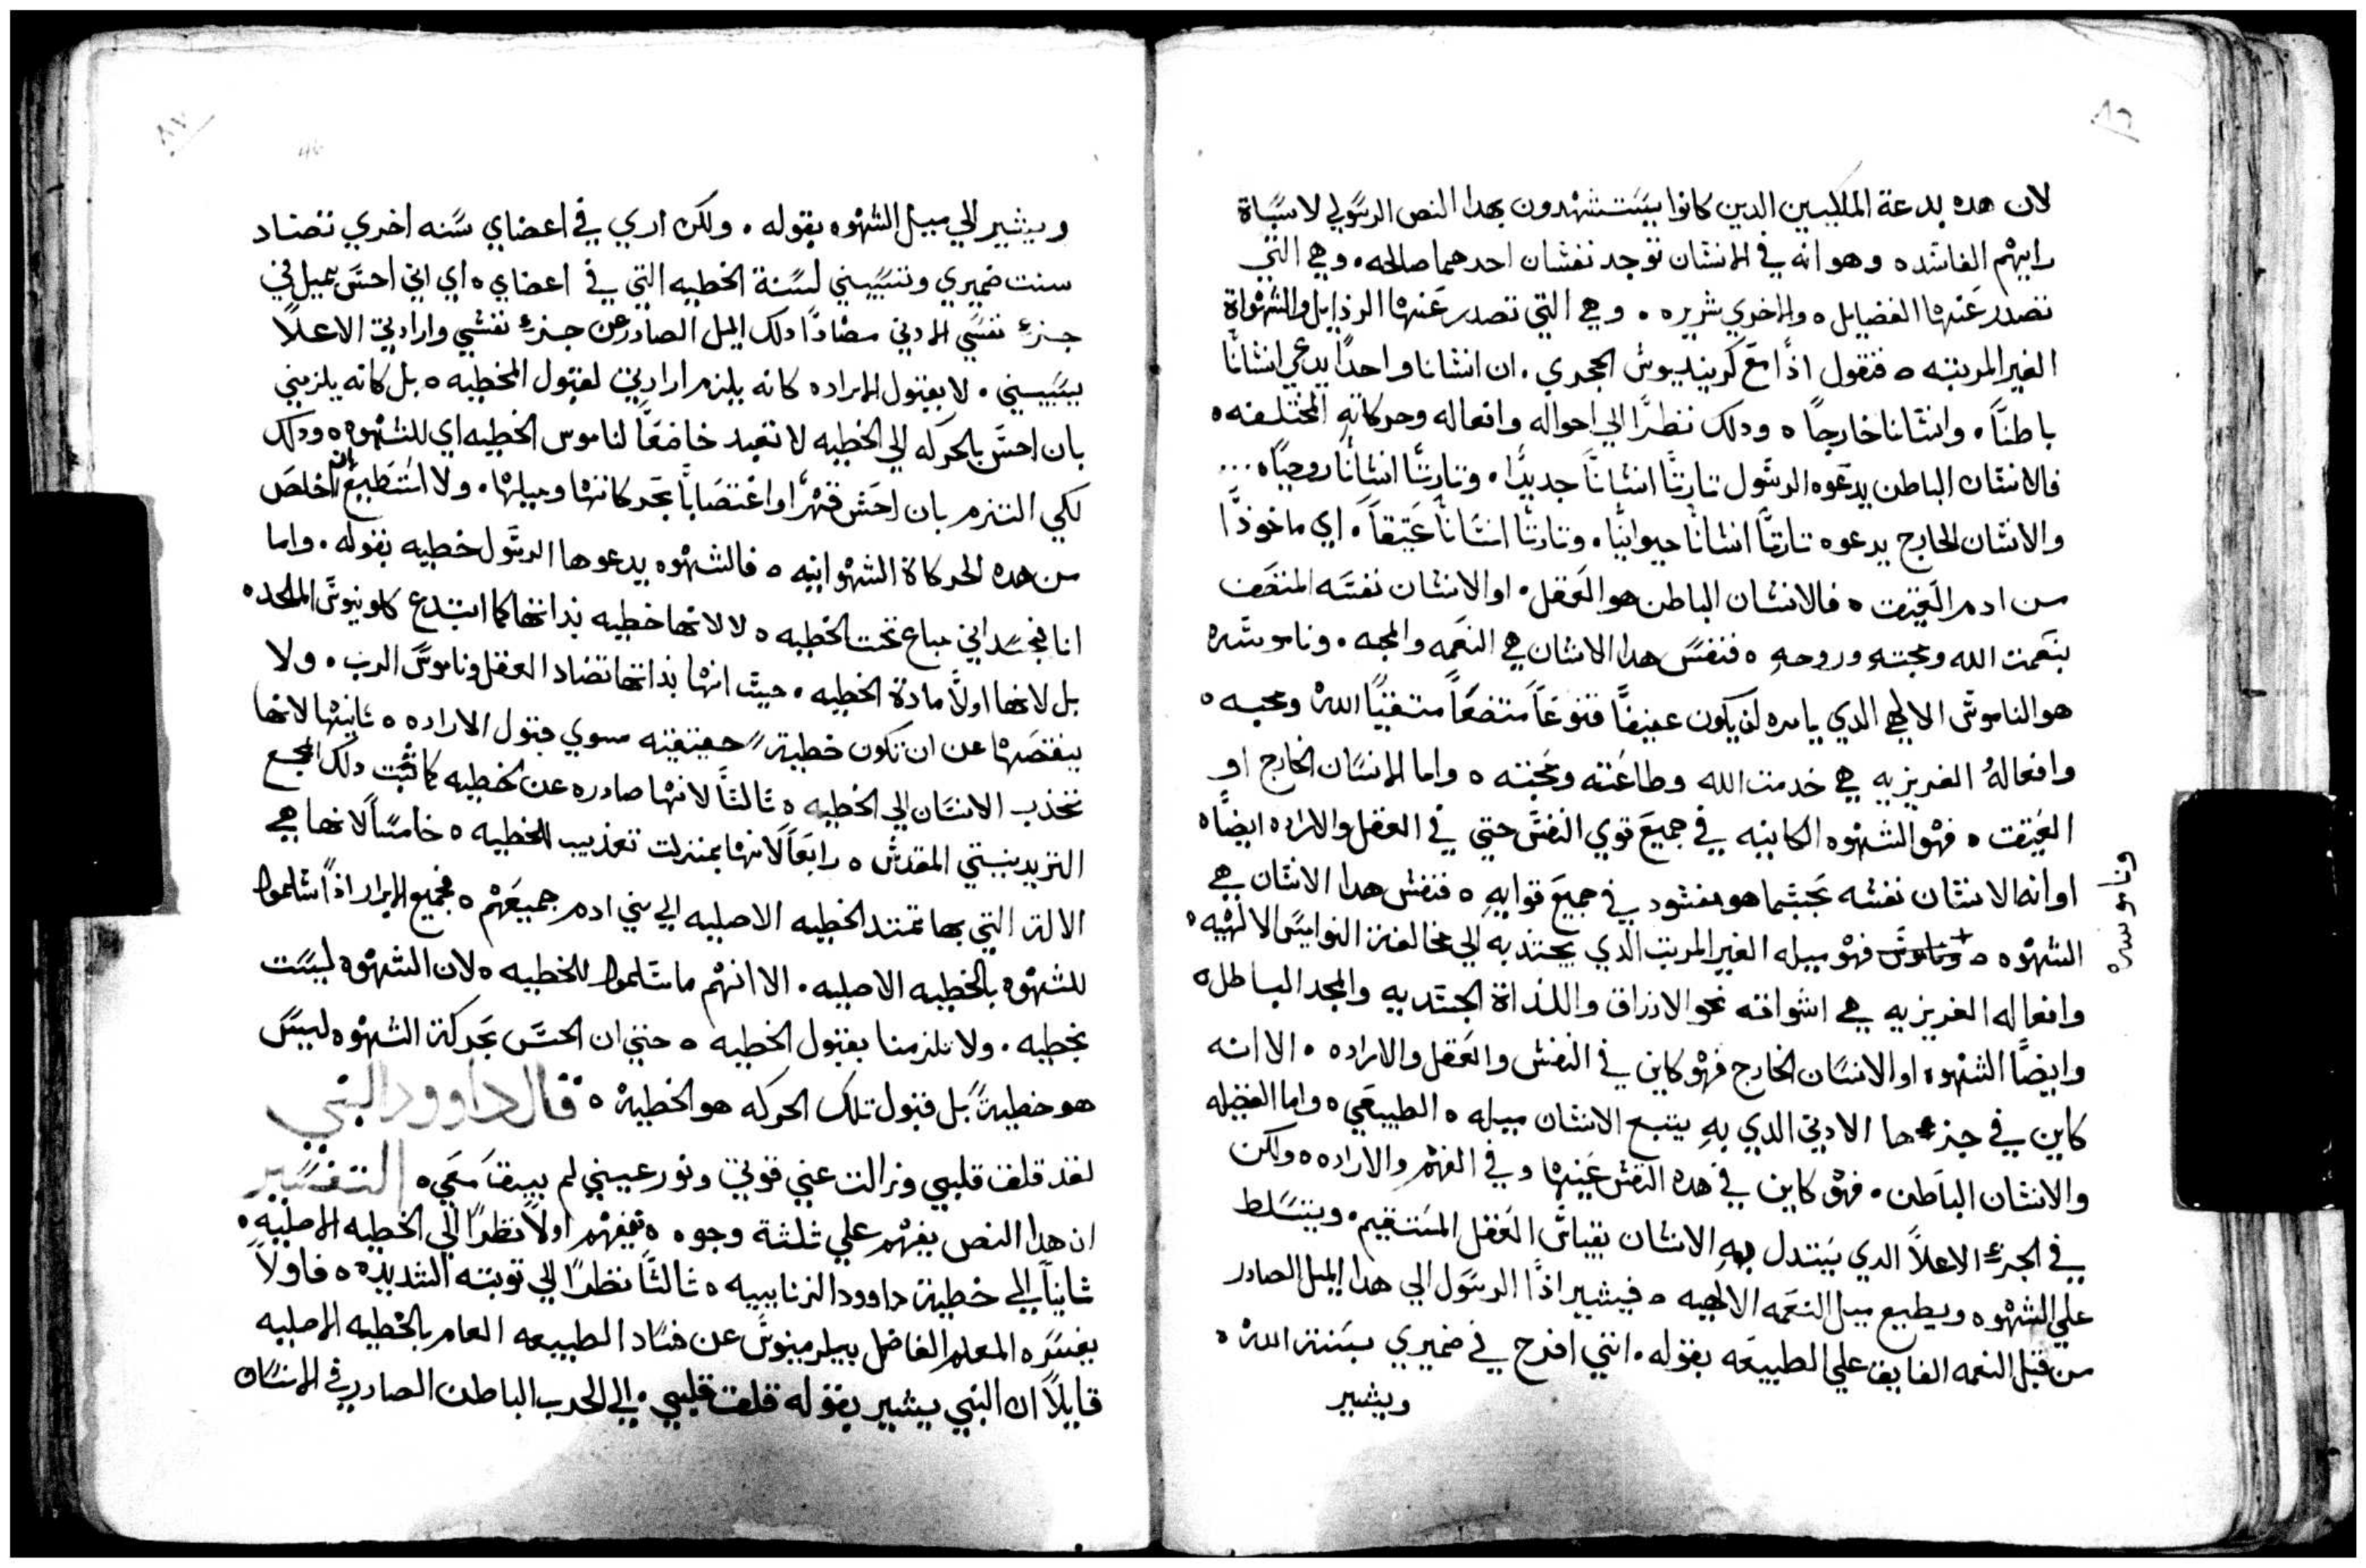 ٨٦
لان هده بدعة الملكيين الدين كانوا يستشهدون بهدا النص الرسولي لاسباة
راييهم الفاسده وهو انه في الانسان توجد نفسان احدهما صالحه. وهي التي
تصدر عنها الفضايل ه والاخري شريره. وهي التي تصدر عنها الردايل والشهواة
الغير المرتبه ه فنقول اذاً مع كرنيليوس الحجري. ان انسانا واحداً يدعي انساناً
باطناً. وانسانا خارجاً ه ودلك نظراً الي احواله وافعاله وحركاته المختلفه ه
فالانسان الباطن يدعوه الرسول تارتاً انساناً جديداً. وتارتاً انساناً روحياً ه ...
والانسان الخارج يدعوه تارتاً انساناً حيوانياً. وتارتاً انساناً عتيقاً. اي ماخوذاً
من ادم العتيق ه فالانسان الباطن هو العقل. او الانسان نفسه المتصف
بنعمت الله ومحبته وروحه ه فنفس هدا الانسان هي النعمه والمحبه. وناموسه
هو الناموس الالهي الدي يامره لن يكون عفيفاً قنوعاً متضعاً متقياً الله ومحبه ه
وافعاله الغريزيه هي خدمت الله وطاعته ومحبته ه واما الانسان الخارج او
العتيق ه فهو الشهوه الكاينه في جميع قوي النفس حتي في العقل والاراده ايضاً ه
او انه الانسان نفسه بحسبما هو مفسود في جميع قوايه ه فنفس هدا الانسان هي
الشهوه ه وناموس فهو ميله الغير المرتب الدي يجتذبه الي مخالفة النواميس الالهيه ه
وناموسه
وافعاله الغريزيه هي اشواقه نحو الارزاق واللذاة الجسديه والمجد الباطل ه
وايضاً الشهوه او الانسان الخارج فهو كاين في النفس والعقل والاراده. الا انه
كاين في جزءها الادني الدي به يتبع الانسان ميله ه الطبيعي ه واما الفضيله
والانسان الباطن. فهو كاين في هده النفس عينها وفي الفهم والاراده ه ولكن
في الجزء الاعلاً الدي يستدل به الانسان بقياس العقل المستقيم. ويتسلط
علي الشهوه ويطيع ميل النعمه الالهيه ه فيشير اذاً الرسول الي هدا الميل الصادر
من قبل النعمه الفايق علي الطبيعه بقوله. انني افرح في ضميري بسنة الله ه
ويشير
٨٧
ويشير الي ميل الشهوه بقوله. ولكن اري في اعضاي سنه اخري تضاد
سنت ضميري وتسبيني لسنة الخطيه التي في اعضاي ه اي اني احس بميل في
جزء نفسي الادني مضاداً دلك الميل الصادر عن جزء نفسي وارادتي الاعلاً
يسبيني. لا بقبول الاراده كانه يلزم ارادتي لقبول الخطيه ه بل كانه يلزمني
بان احس بالحركه الي الخطيه لا تعبد خاضعاً لناموس الخطيه اي للشهوه ه ودلك
لكي التزم بان احس قهراً او اغتصاباً بحركاتها وميلها. ولا استطيع بان اخلص
من هده الحركاة الشهوانيه ه فالشهوه يدعوها الرسول خطيه بقوله. واما
انا فجسداني مباع تحت الخطيه ه لا لانها خطيه بداتها كما ابتدع كلوينوس الملحد ه
بل لانها اولاً مادة الخطيه. حيث انها بداتها تضاد العقل وناموس الرب. ولا
ينقصها عن ان تكون خطية حقيقيه سوي قبول الاراده ه ثانيها لانها
تجذب الانسان الي الخطيه ه ثالثاً لانها صادره عن الخطيه كما ثبت دلك المجمع
التريدينتيني المقدس ه رابعاً لانها بمنزلت تعذيب للخطيه ه خامساً لانها هي
الالة التي بها تمتد الخطيه الاصليه الي بني ادم جميعهم ه فجميع الابرار اذاً سلموا
للشهوه بالخطيه الاصليه. الا انهم ما سلموا للخطيه ه لان الشهوه ليست
بخطيه. ولا تلزمنا بقبول الخطيه ه حتي ان الحس بحركة الشهوه ليس
هو خطيةً بل قبول تلك الحركه هو الخطية ه قال داوود النبي
لقد قلق قلبي وزالت عني قوتي ونور عيني لم يبق معي ه التفسير
ان هدا النص يفهم علي ثلثة وجوه ه فيفهم اولاً نظراً الي الخطيه الاصليه ه
ثانياً الي خطية داوود الزناييه ه ثالثاً نظراً الي توبته الشديده ه فاولاً
يفسره المعلم الفاضل بيلرمينوس عن فساد الطبيعه العام بالخطيه الاصليه
قايلاً ان النبي يشير بقوله قلق قلبي. الي الحرب الباطن الصادر في الانسان